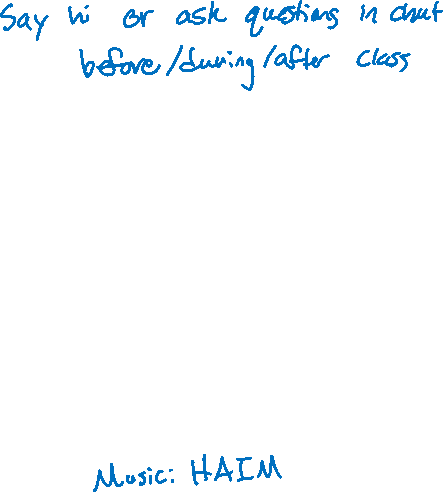 Say hi or ask questions in chat
before/during/after class
Music: HAIM